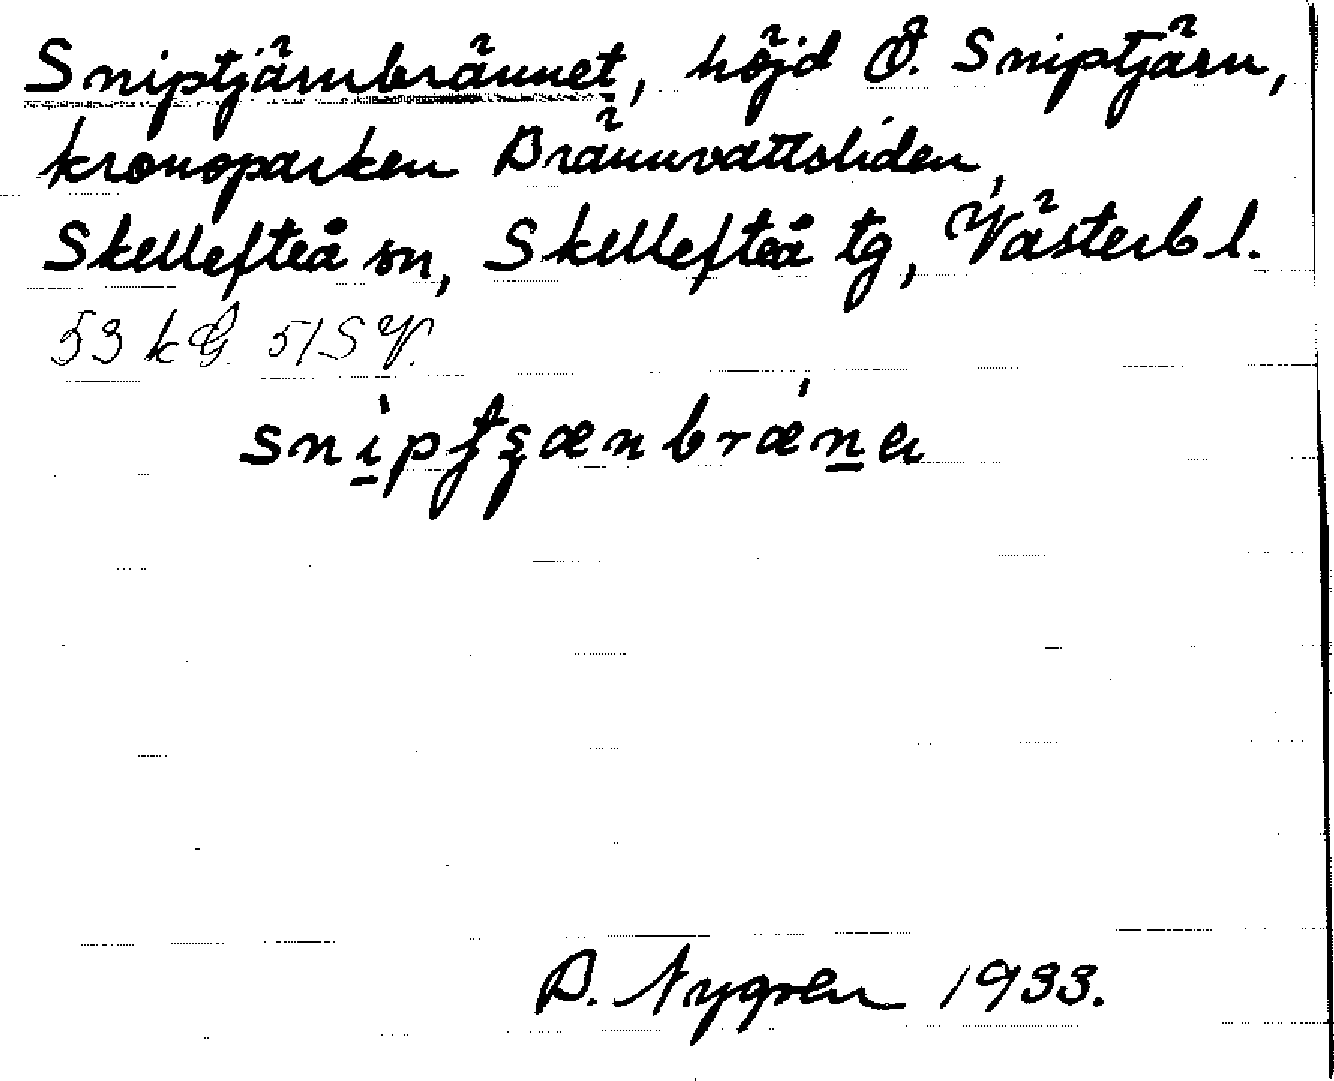 Sniptjärnbrännet, höjd Ö. Sniptjärn,
kronoparken Brännvattsliden,
Skellefteå sn, Skellefteå tg, Västerb l.
53 k G 51 SV.
B. Nygren 1933.